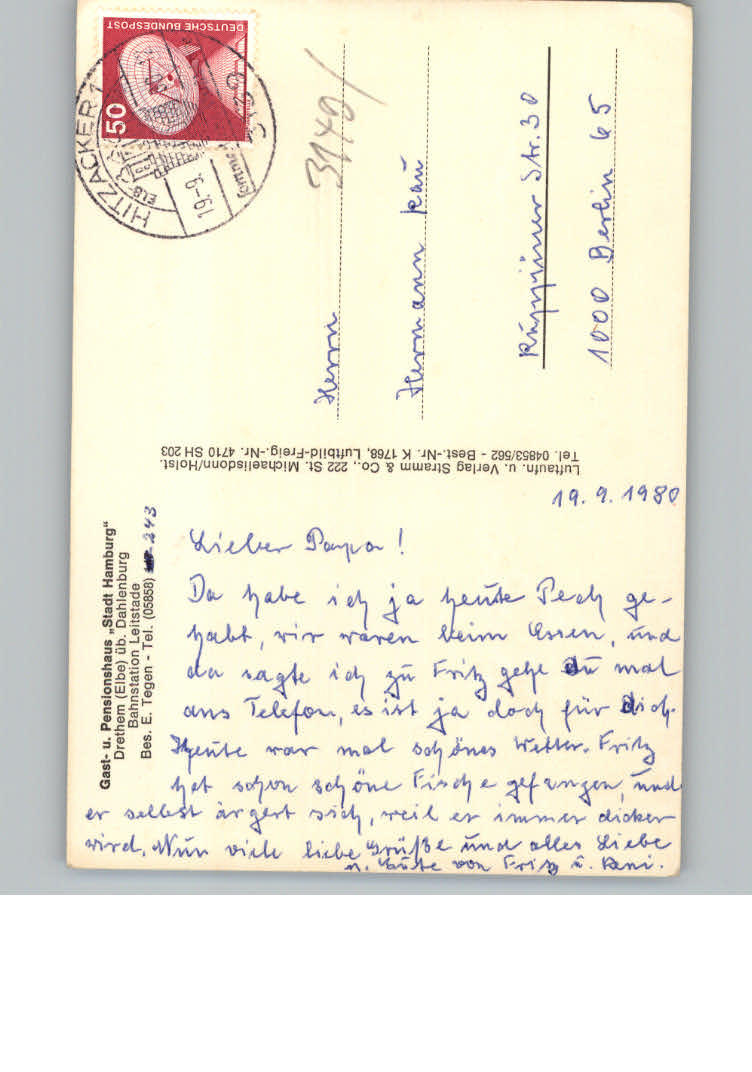 DEUTSCHE BUNDESPOST
50
HITZACKER 1
19.-9.
3140/
Herrn
Hermann Kau
Ruppiner Str. 30
1000 Berlin 65
Luftaufn. u. Verlag Stramm & Co., 222 St. Michaelisdonn/Holst.
Tel. 04853/562 - Best.-Nr. K 1768, Luftbild-Freig.-Nr. 4710 SH 203
Gast- u. Pensionshaus „Stadt Hamburg“
Drethem (Elbe) üb. Dahlenburg
Bahnstation Leitstade
Bes. E. Tegen - Tel. (05858) 243
19.9.1980
Lieber Papa!
Da habe ich ja heute Pech ge-
habt, wir waren beim Essen, und
da sagte ich zu Fritz gehe Du mal
ans Telefon, es ist ja doch für Dich.
Heute war mal schönes Wetter. Fritz
hat schon schöne Fische gefangen, und
er selbst ärgert sich, weil er immer dicker
wird. Nun viele liebe Grüße und alles Liebe
u. Gute von Fritz u.